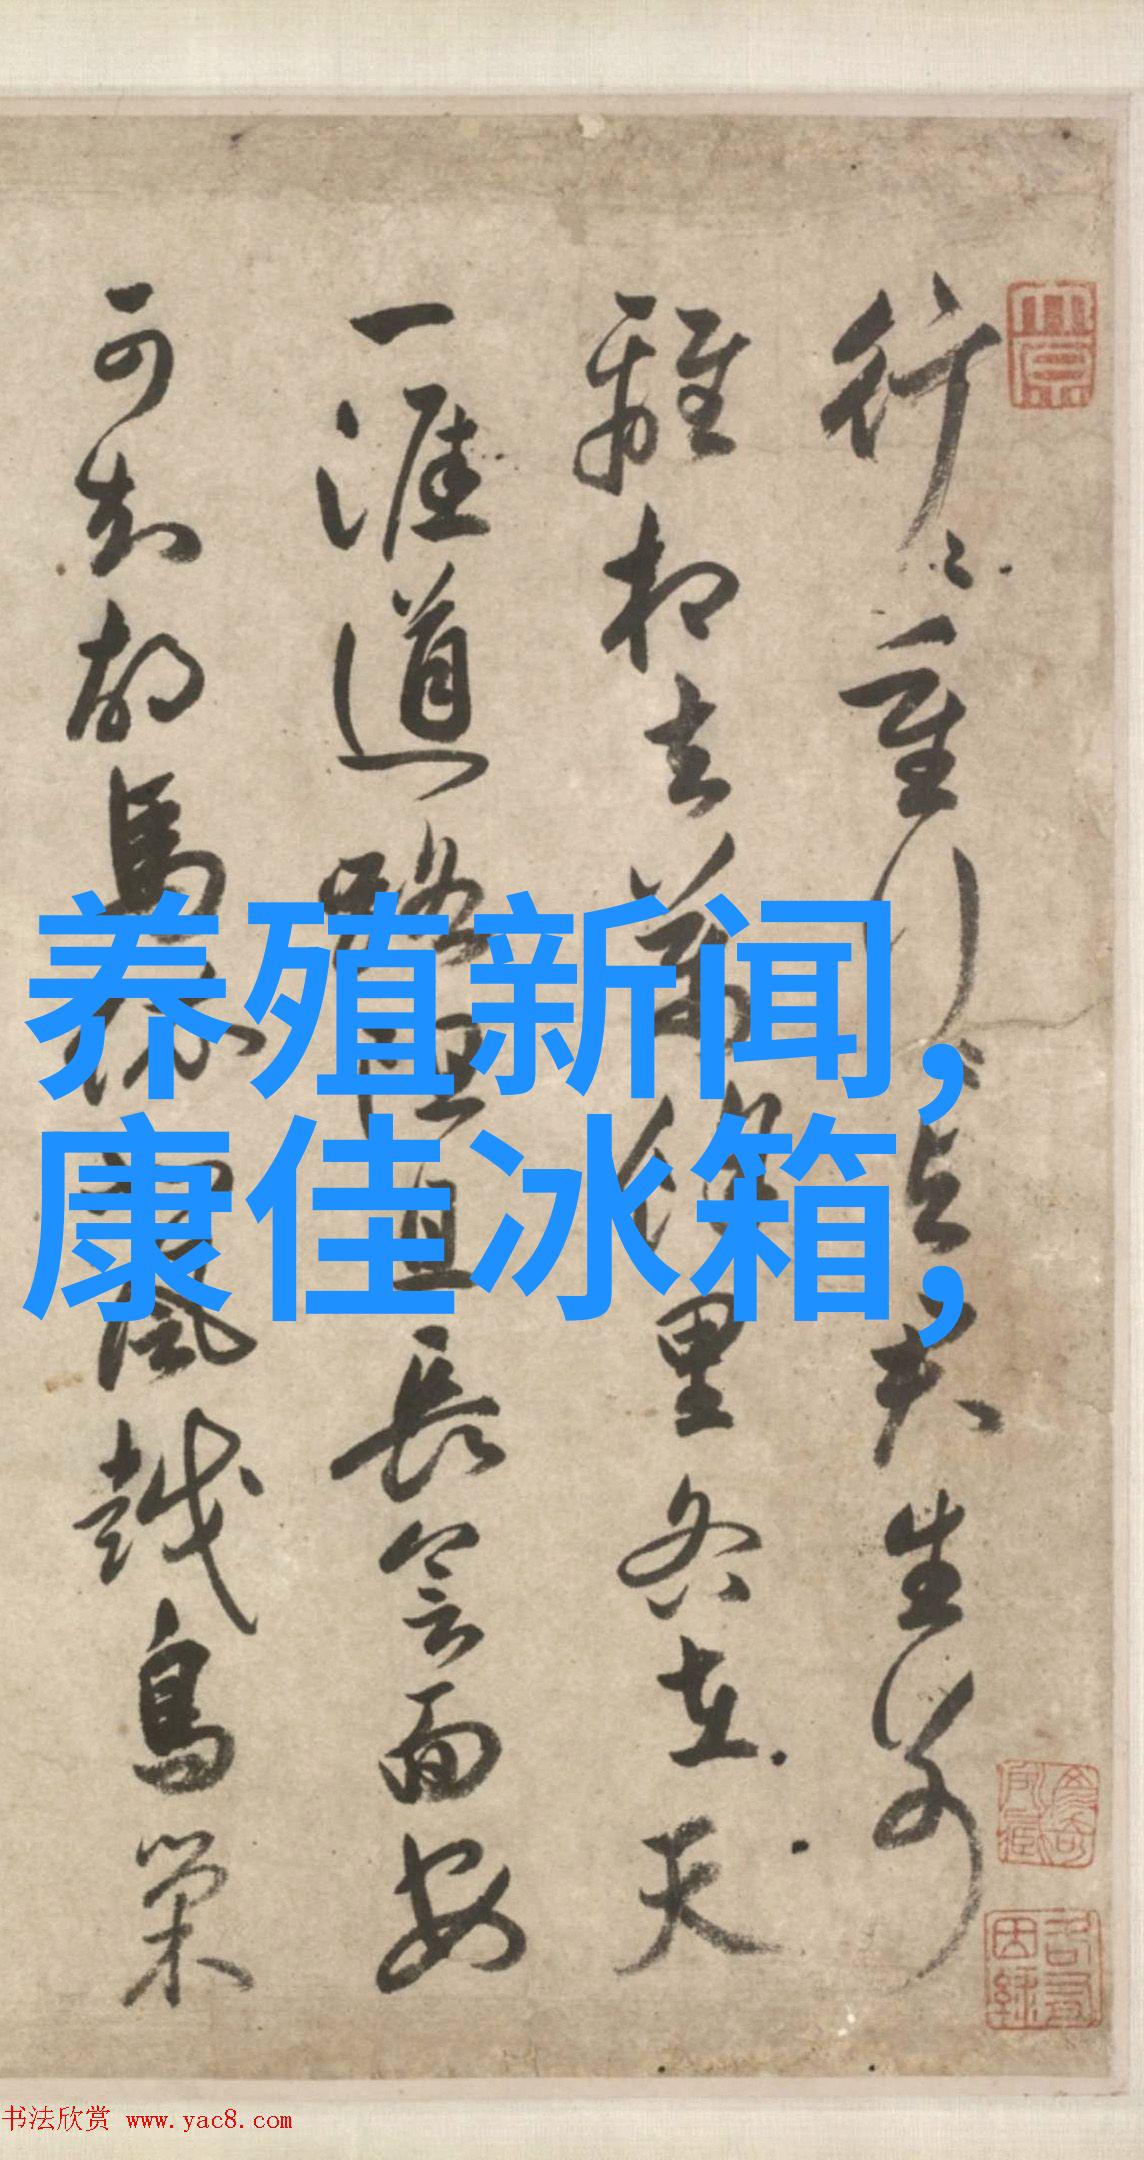 行〻重行〻与君生別
離相去萬餘里各在天
一涯道路阻且長會面安
可知胡馬依北風越鳥巢
养殖新闻,
康佳冰箱,
书法欣赏 www.yac8.com